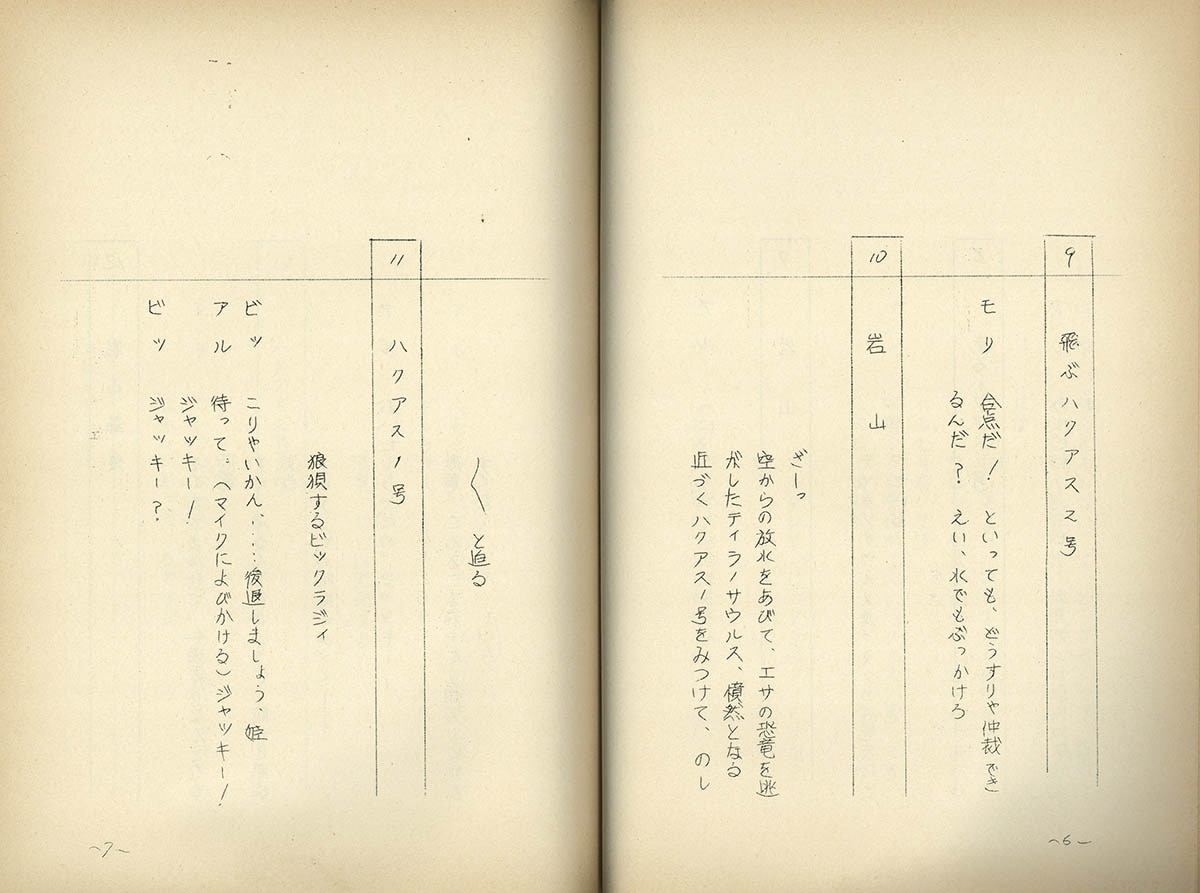 9 飛ぶハクアス2号
モリ 合点だ! といっても、どうすりゃ仲裁でき
るんだ? えい、水でもぶっかけろ
10 岩山
ざーっ
空からの放水をあびて、エサの恐竜を逃
がしたティラノサウルス、憤然となる
近づくハクアス1号をみつけて、のし
~6~
〱と迫る
11 ハクアス1号
狼狽するビックラジィ
ビッ こりゃいかん、……後退しましょう、姫
アル 待って。(マイクによびかける)ジャッキー!
ジャッキー!
ビッ ジャッキー?
~7~